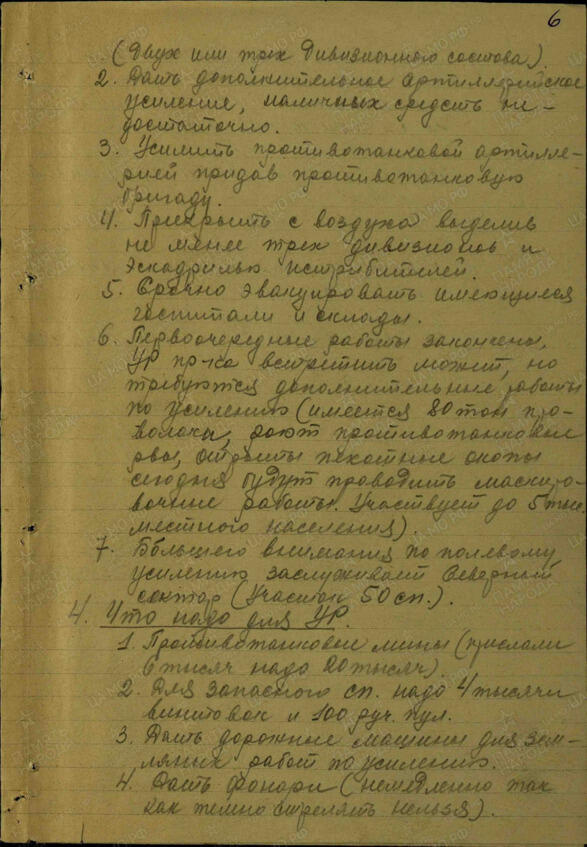 6
(Двух или трех дивизионного состава).
2. Дать дополнительное артиллерийское
усиление, наличных средств не-
достаточно.
3. Усилить противотанковой артилле-
рией придав противотанковую
бригаду.
4. Прикрыть с воздуха выделив
не менее трех дивизионов и
эскадрилью истребителей.
5. Срочно эвакуировать имеющиеся
госпитали и склады.
6. Первоочередные работы закончены,
УР пр-ка встретить может, но
требуются дополнительные работы
по усилению (имеется 80 тонн про-
волоки, роют противотанковые
рвы, отрыты пехотные окопы
сегодня будут проводить маскиро-
вочные работы. Участвует до 5 тыс.
местного населения).
7. Большего внимания по полевому
усилению заслуживает Северный
сектор (Участок 50 сп.).
4. Что надо для УР.
1. Противотанковые мины (прислали
6 тысяч надо 20 тысяч).
2. Для запасного сп. надо 4 тысячи
винтовок и 100 руч. пул.
3. Дать дорожные машины для зем-
ляных работ по усилению.
4. Дать фонари (немедленно так
как темно стрелять нельзя).